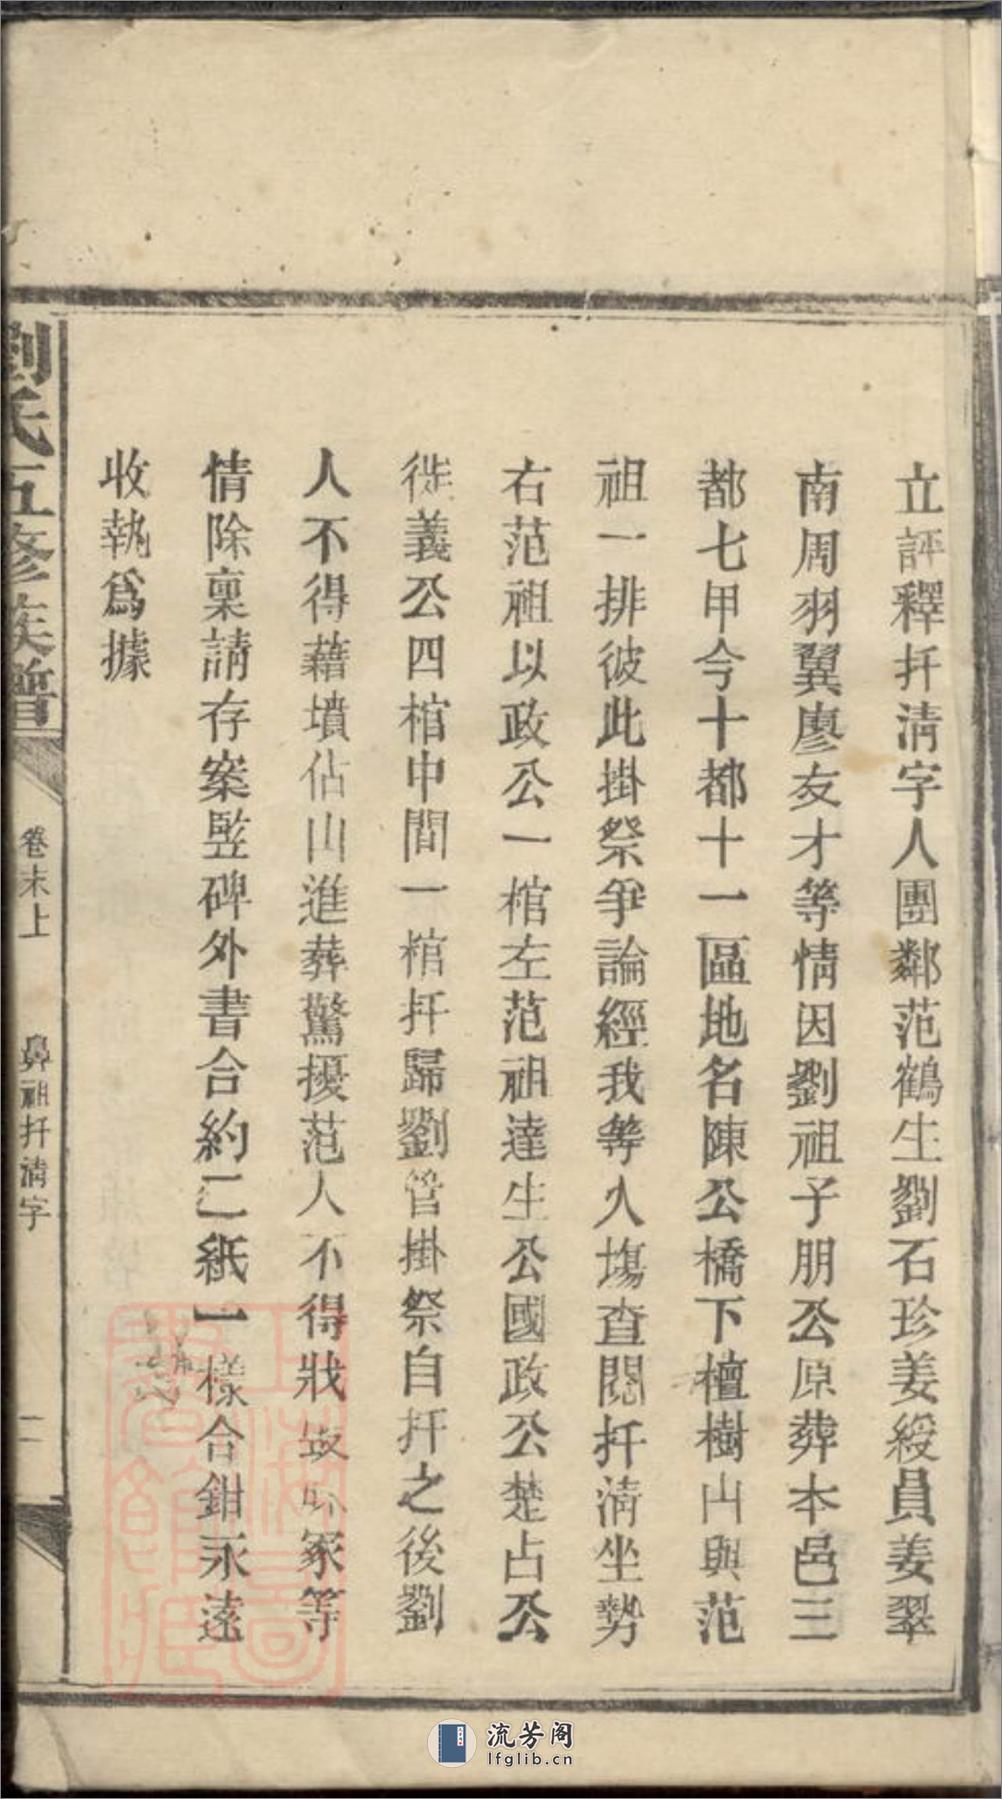 立評釋扦清字人團鄰范鶴生劉石珍姜綬員姜翠
南周羽翼廖友才等情因劉祖子朋公原葬本邑三
都七甲今十都十一區地名陳公橋下檀樹山與范
祖一排彼此掛祭爭論經我等入塲查閱扦清坐勢
右范祖以政公一棺左范祖達生公國政公楚占公
從義公四棺中間一棺扦歸劉管掛祭自扦之後劉
人不得藉墳佔山進葬驚擾范人不得戕冢等
情除稟請存案竪碑外書合約二紙一樣合鉗永遠
收執爲據
劉氏五修族譜
卷末上
鼻祖扦清字
二
流芳阁
lfglib.cn